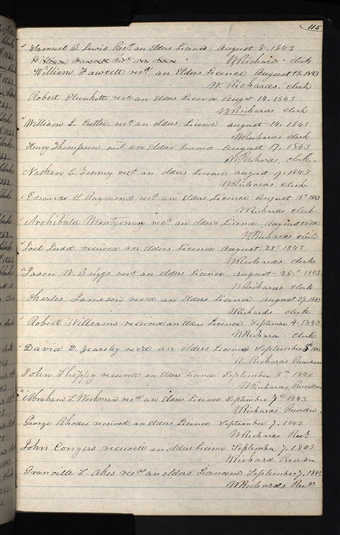 115
Samuel B. Lewis Recd. an Elders Licence August 8. 1843
W Richards clk
William Fawcett recd an Elders Licence August 12. 1843
W. Richards. clerk
Robert Plunkett recd an Elders Licence August 14. 1843
W Richards clerk
William L. Cutler recd an Elders Licence August 14. 1843
W Richards clerk
Henry Thompson recd an Elders Licence August 17. 1843
W Richards clerk
Nathan C. Tenney recd an Elders Licence August 17 1843
W Richards clerk
Edward H Raymond recd an Elders Licence August 18th 1843
W Richards clerk
Archibald Montgomery recd an elders Licence August 1843
W Richards clerk
Joel Judd received an elders Licence August 28th 1843
W Richards clerk
Jason W. Briggs recd an elders Licence August 28th 1843
W Richards clerk
Charles Jameson recd an elders Licence August 29. 1843
W Richards clerk
Robert Williams received an elders Licence September 4. 1843
W Richards clerk
David D. Yearsley recd an elders Licence September 1843
W. Richards Recorder
John received an elders Licence September 5th 1843
W Richards Recorder
Abraham Workman recd an elders Licence September 7th 1843
W Richards Recorder
George Rhodes received an elders Licence September 7. 1843
W Richards Recd.
John Conyers received an elders Licence September 7. 1843
W Richards Recorder
Granville L. recd an elders Licence September 7. 1843
W Richards Recd.